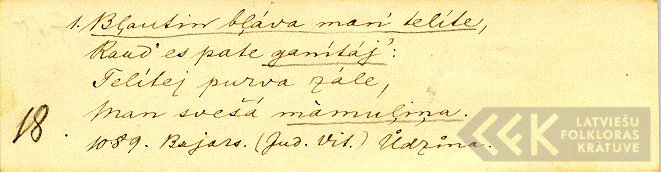 1. Bļautin bļáva man' telíte,
Raud es pate ganítáj':
Telítej purva zále,
Man svešá mámuliņa.
18.
1089. Bajars. (Jud. Vit.) Ŭdzĭna.
LATVIEŠU
FOLKLORAS
KRĀTUVE